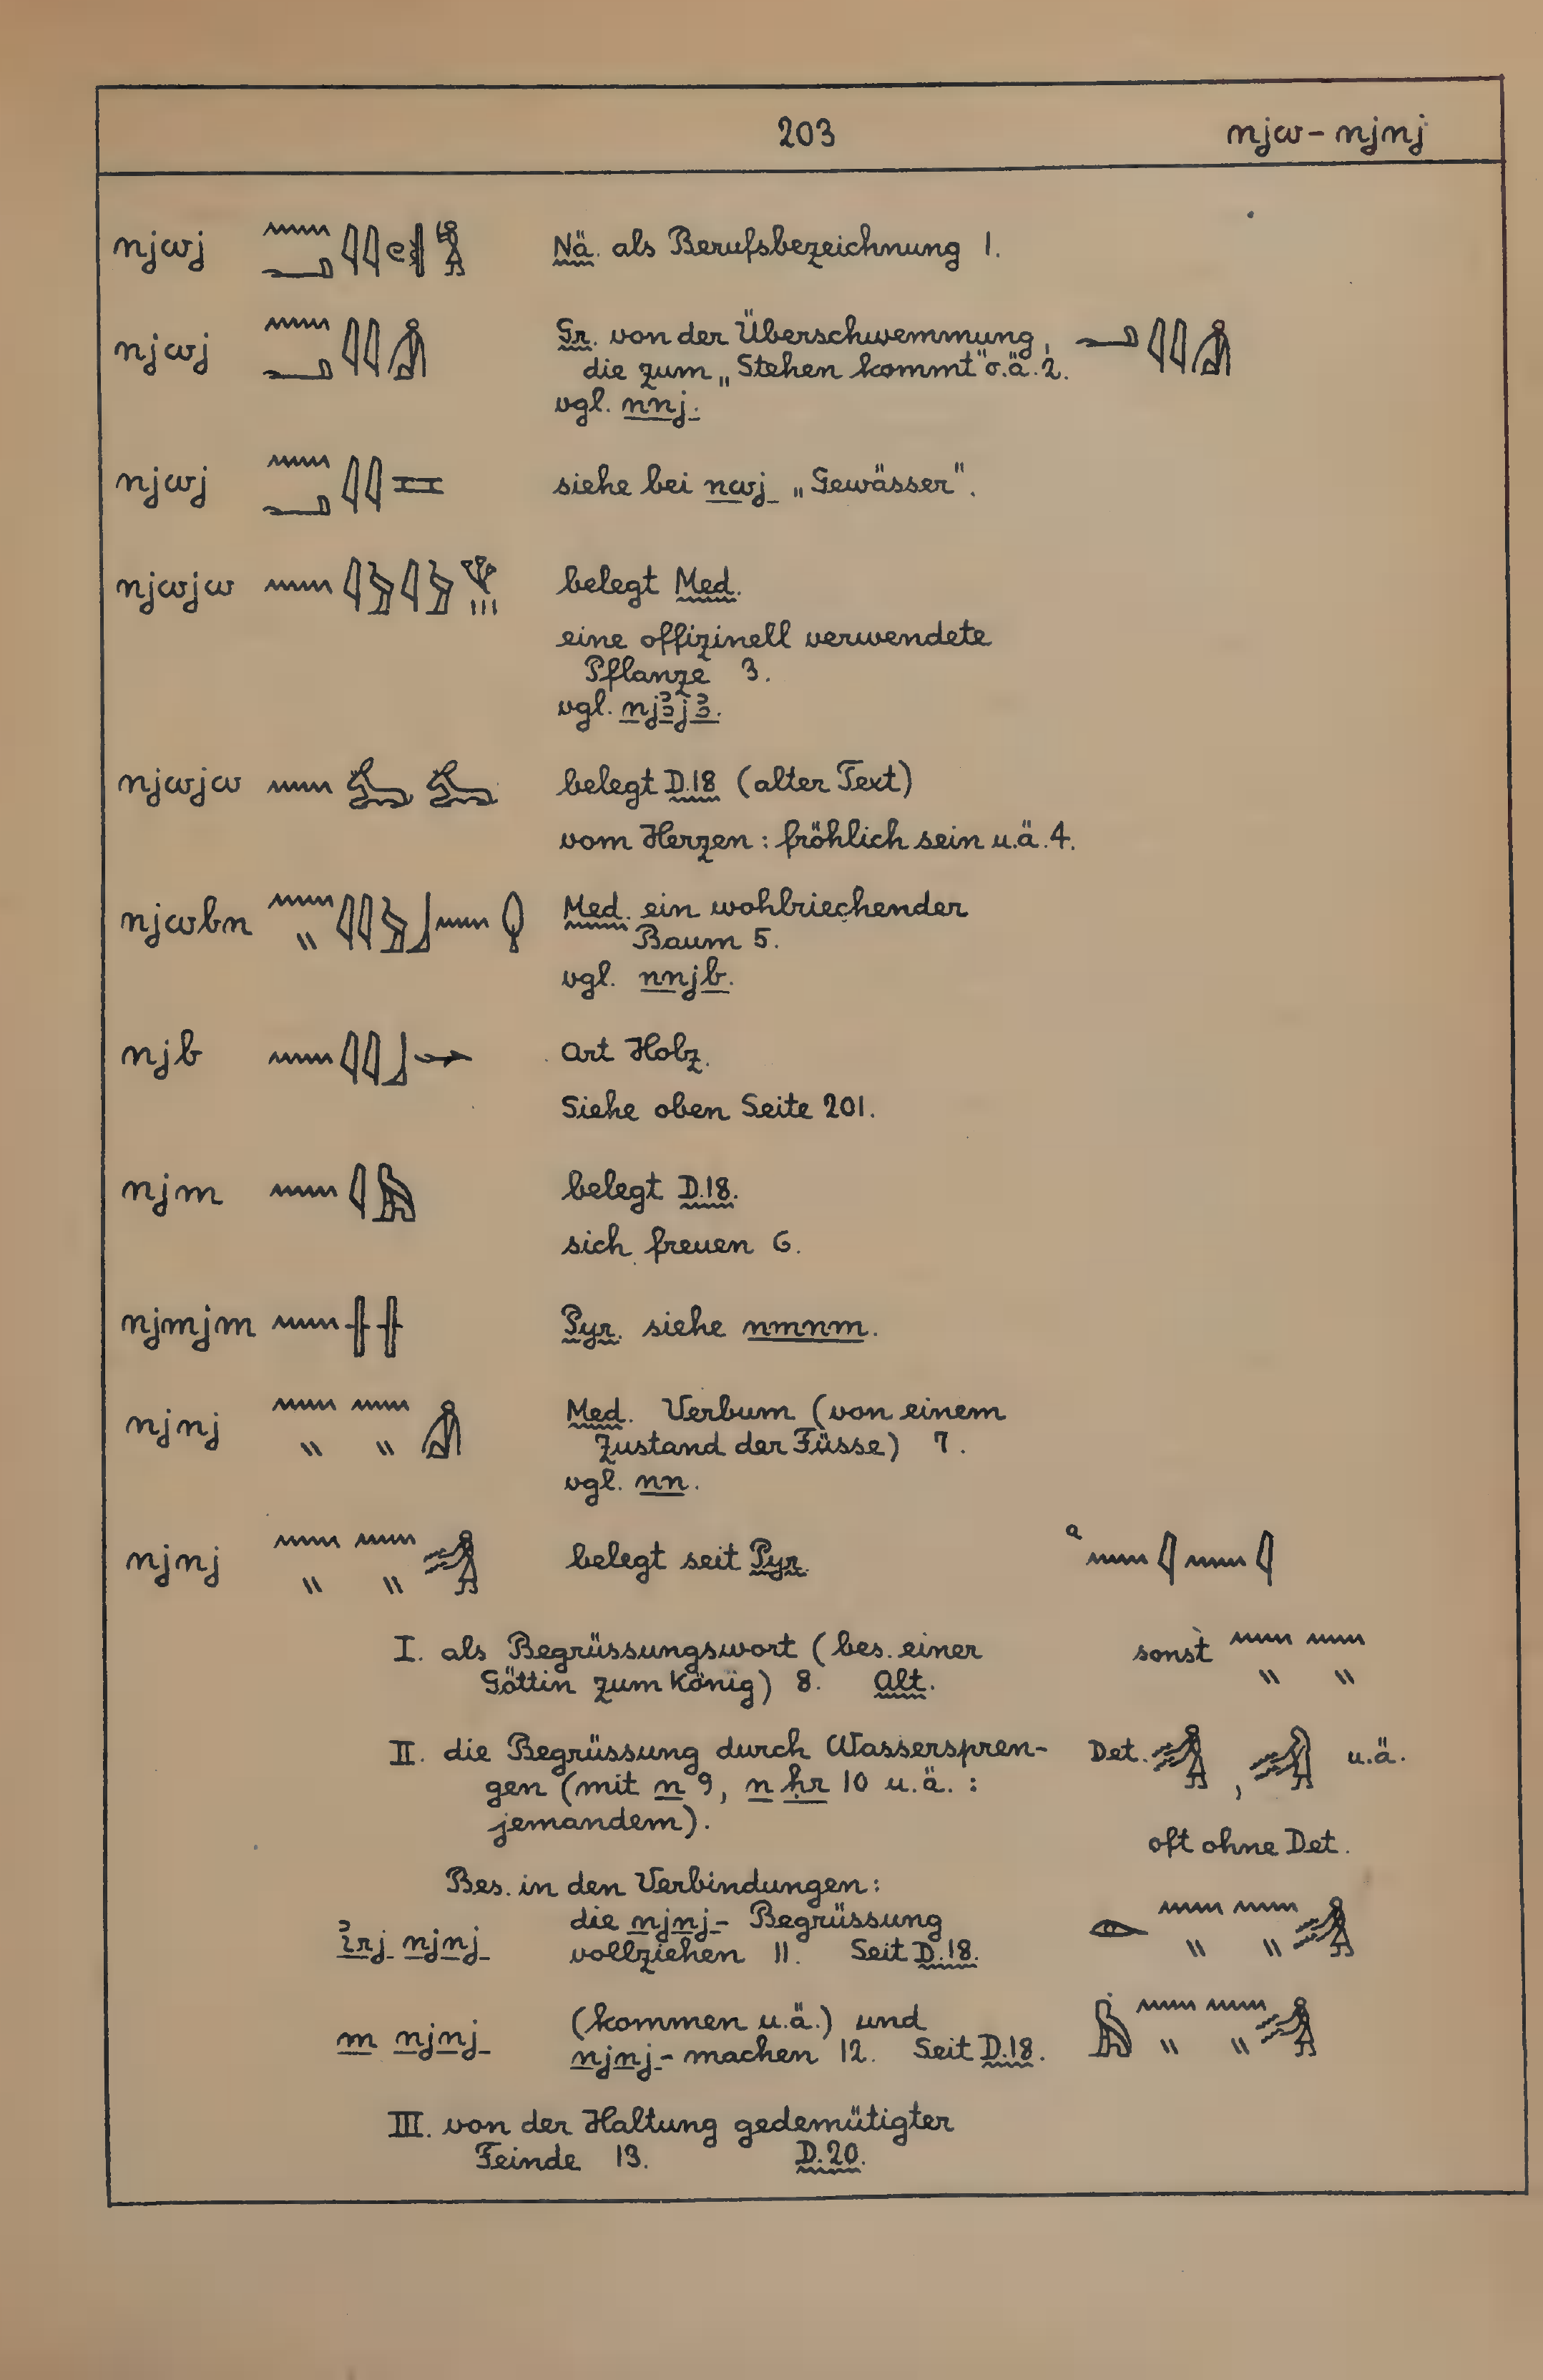 203 njw - njnj
njwj Nä. als Berufsbezeichnung 1.
njwj Gr. von der Überschwemmung,
die zum „Stehen kommt" o.ä. 2.
vgl. nnj.
njwj siehe bei nwj „Gewässer".
njwjw belegt Med.
eine offizinell verwendete
Pflanze 3.
vgl. njꜣjꜣ.
njwjw belegt D.18 (alter Text)
vom Herzen: fröhlich sein u.ä. 4.
njwbn Med. ein wohlriechender
Baum 5.
vgl. nnjb.
njb Art Holz.
Siehe oben Seite 201.
njm belegt D.18.
sich freuen 6.
njmjm Pyr. siehe nmnm.
njnj Med. Verbum (von einem
Zustand der Füsse) 7.
vgl. nn.
njnj belegt seit Pyr. a
I. als Begrüssungswort (bes. einer
Göttin zum König) 8. Alt.
sonst
II. die Begrüssung durch Wasserspren-
gen (mit n 9, n ḥr 10 u.ä.:
jemandem).
Det. , u.ä.
oft ohne Det.
Bes. in den Verbindungen:
ꞽrj njnj die njnj- Begrüssung
vollziehen 11. Seit D.18.
m njnj (kommen u.ä.) und
njnj- machen 12. Seit D.18.
III. von der Haltung gedemütigter
Feinde 13. D.20.